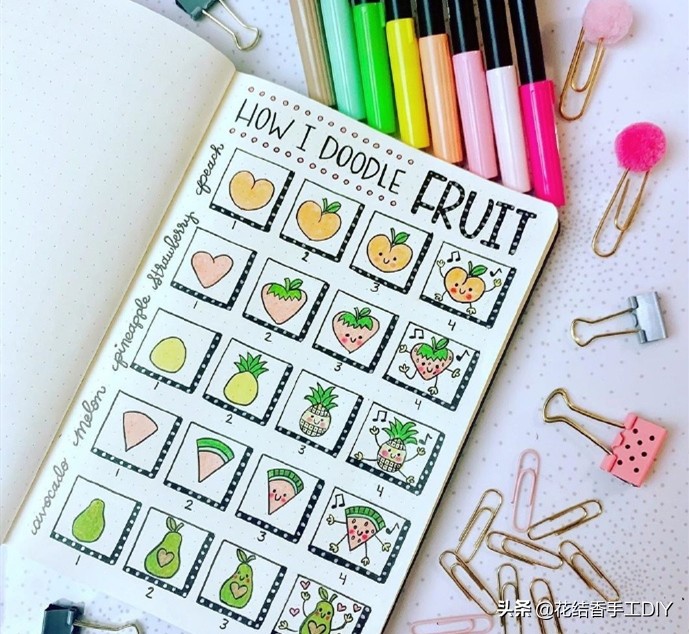 HOW I DOODLE
FRUIT
peach
1
2
3
4
strawberry
1
2
3
4
pineapple
1
2
3
4
melon
1
2
3
4
avocado
1
2
3
头条 @花结香手工DIY